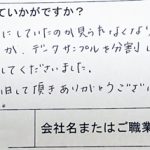 ていかがですか?
にしていたのが見られなくなり
が、データサンプルを分割し
してくださいました。
旧して頂きありがとうござい
会社名またはご職業